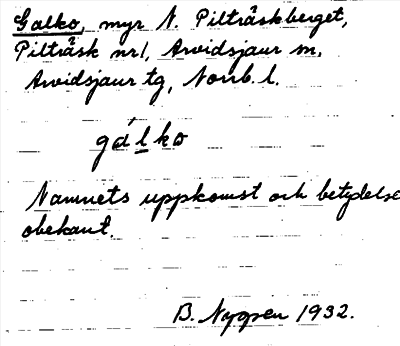 Galko, myr N. Pilträskberget,
Pilträsk nr1, Arvidsjaur sn,
Arvidsjaur tg, Norrb. l.
gálko
Namnets uppkomst och betydelse
obekant.
B. Nygren 1932.